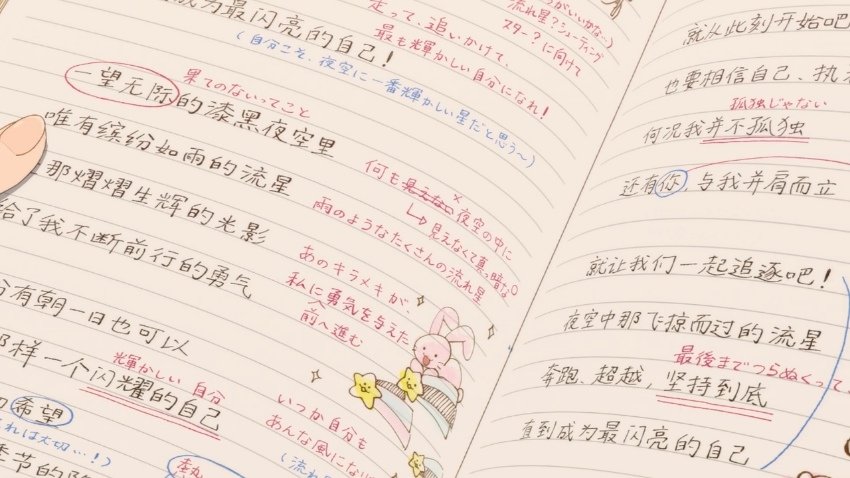 成为最闪亮的自己！
走って、追いかけて、
最も輝かしい自分になれ！
(自分こそ、夜空に一番輝かしい星だと思う〜)
流れ星？シューティング
スター？に向けて
果てのないってこと
一望无际的漆黑夜空里
唯有缤纷如雨的流星
何も見えない夜空の中に
見えなくて真っ暗な
那熠熠生辉的光影
雨のようなたくさんの流れ星
给了我不断前行的勇气
あのキラメキが、
私に勇気を与えた
前へ進む
有朝一日也可以
那样一个闪耀的自己
輝かしい 自分
いつか自分も
あんな風になり
希望
れは大切…！)
就从此刻开始吧
也要相信自己、执
孤独じゃない
何况我并不孤独
还有你，与我并肩而立
就让我们一起追逐吧！
夜空中那飞掠而过的流星
最後までつらぬくって
奔跑、超越，坚持到底
直到成为最闪亮的自己